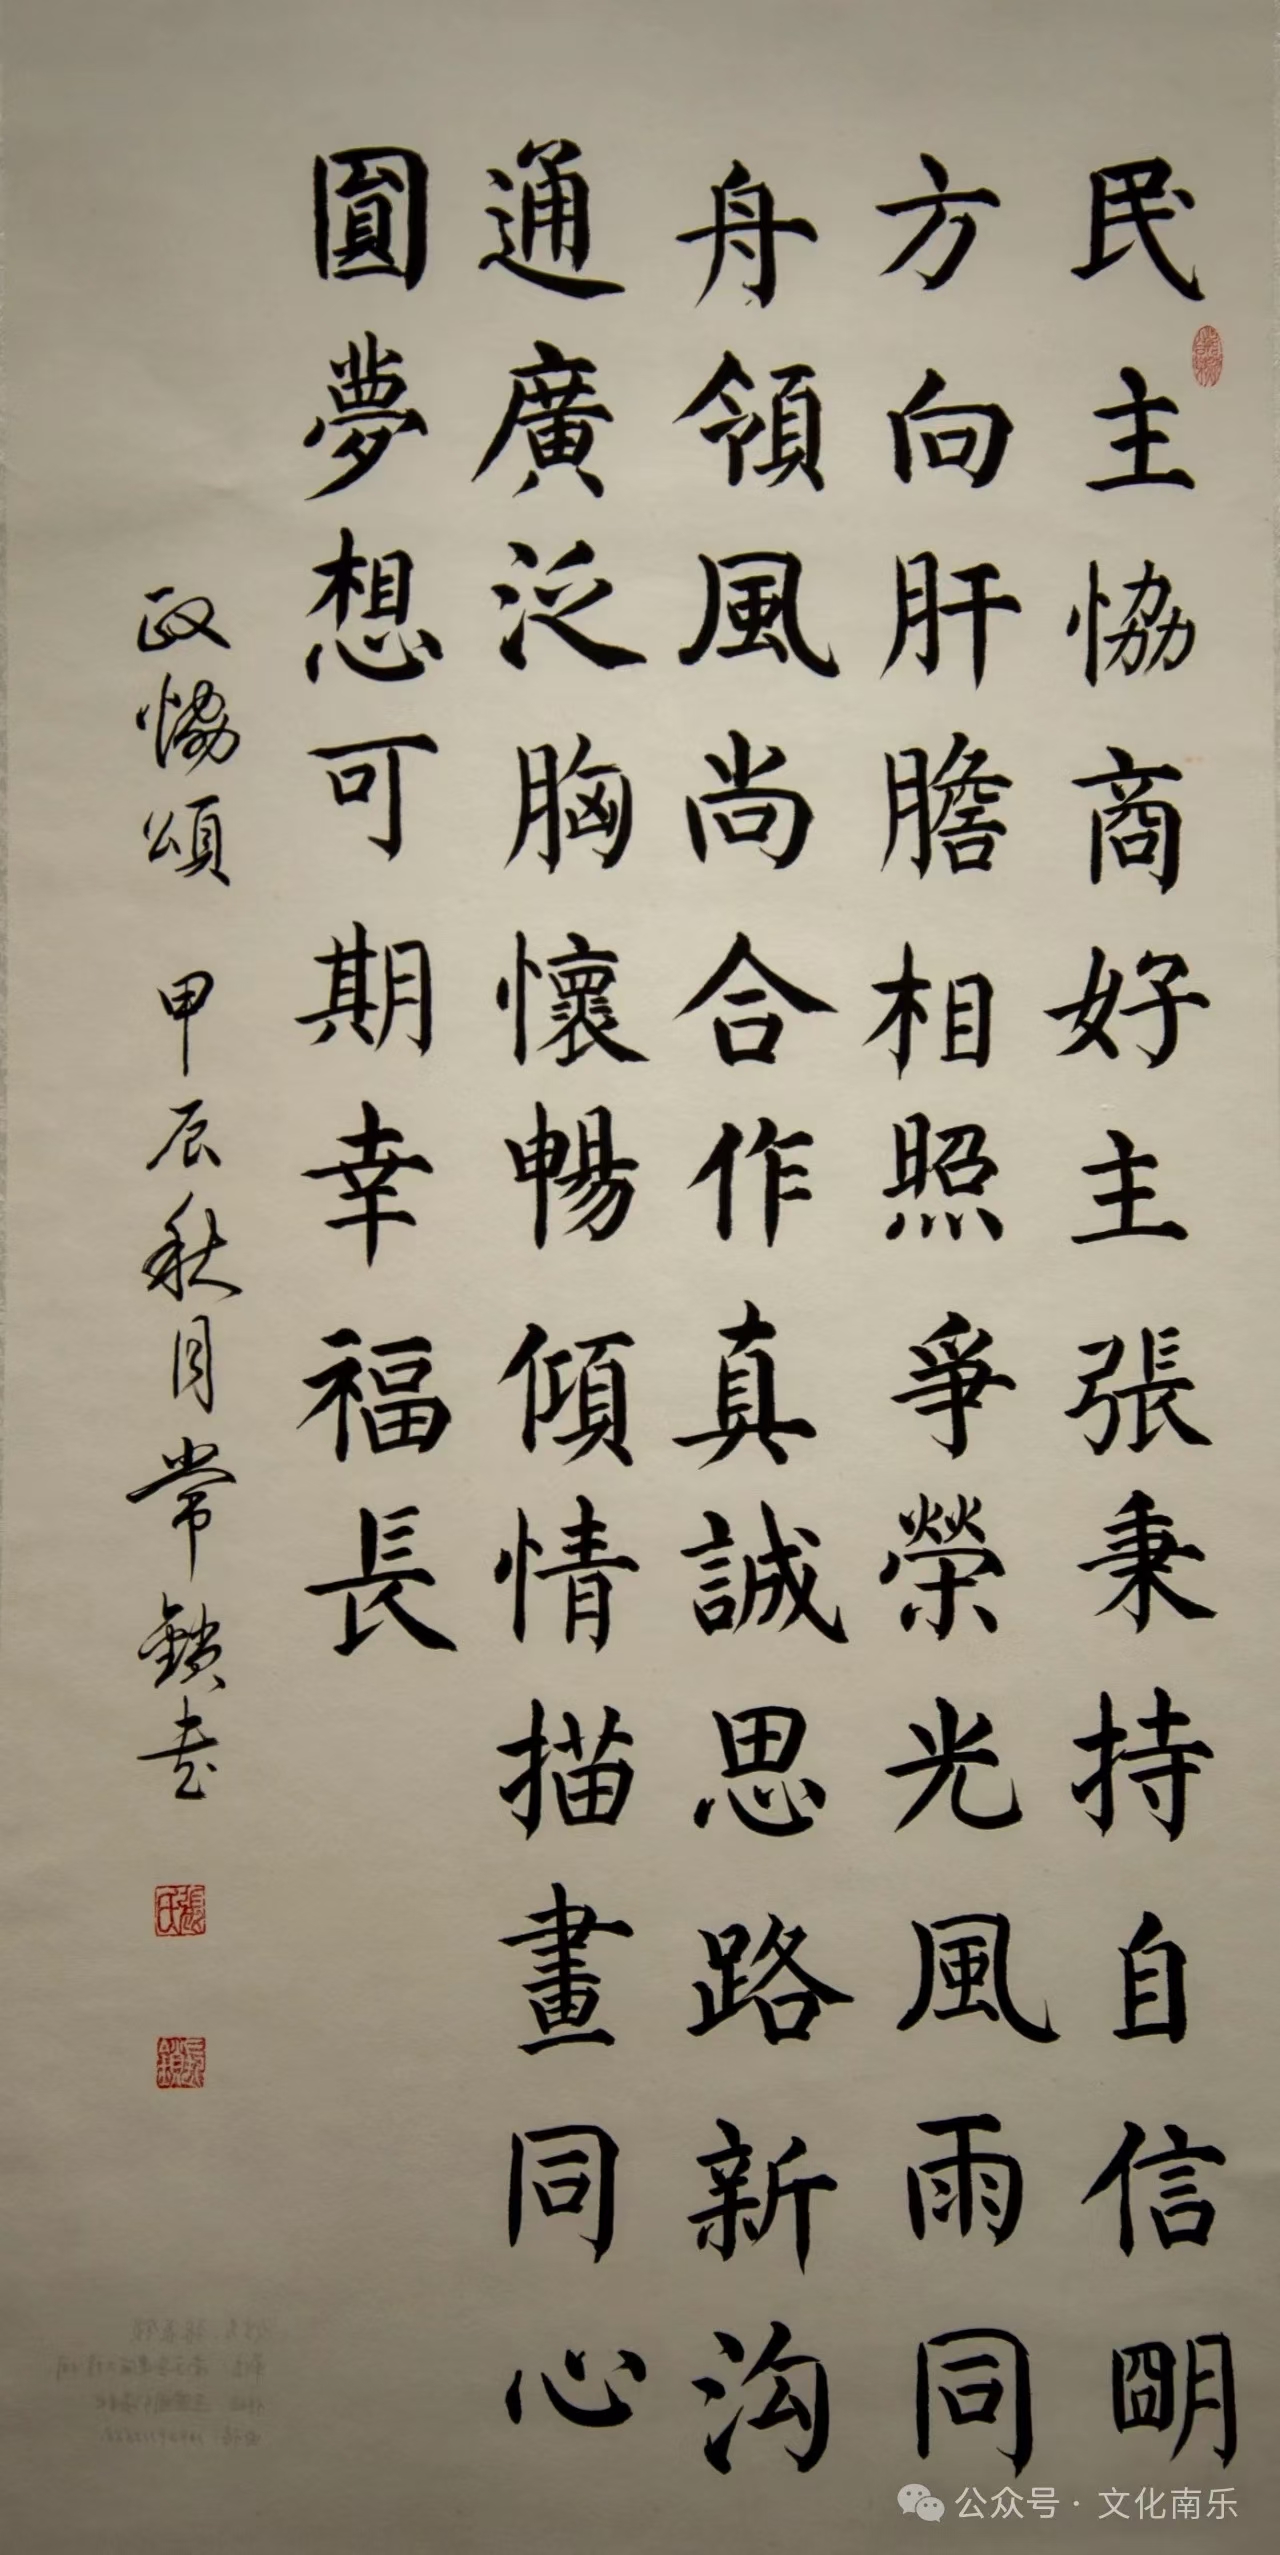 民主恊商好主張秉持自信明
方向肝膽相照爭榮光風雨同
舟領風尚合作真誠思路新溝
通廣泛胸懷暢傾情描畫同心
圓夢想可期幸福長
政恊頌 甲辰秋月常鎖書
張氏
公众号·文化南乐